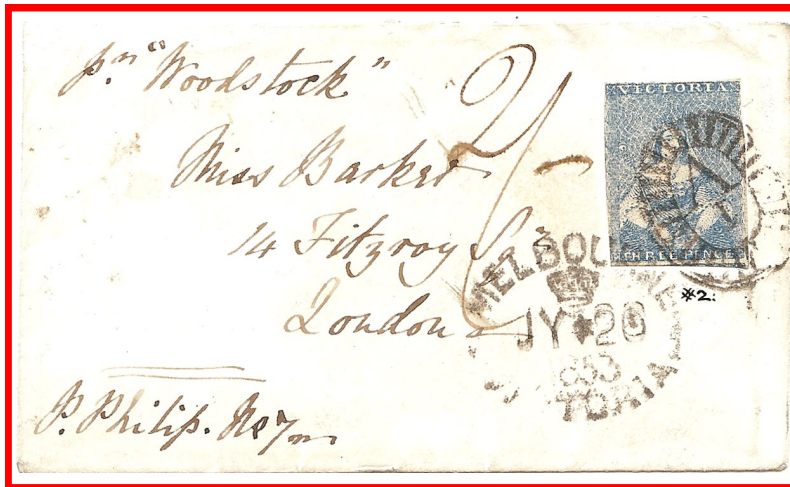 pr "Woodstock"
2/-
VICTORIA
THREE PENCE
Miss Barker
14 Fitzroy Sqr
London
#2.
MELBOURNE
JY * 26
1853
VICTORIA
P. Philip.